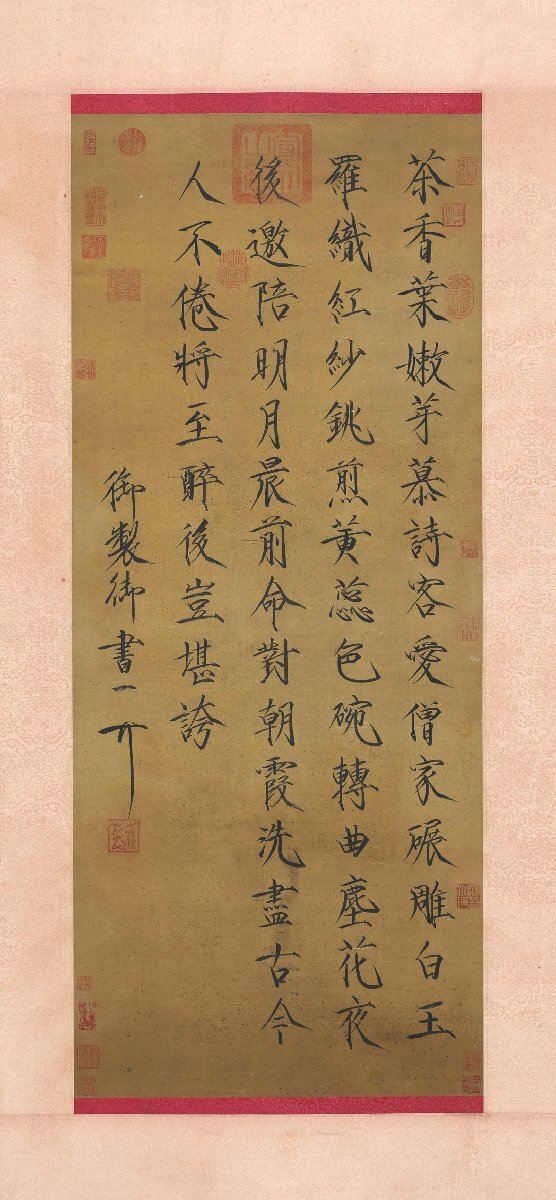 茶香葉嫩芽慕詩客愛僧家碾雕白玉
羅織紅紗銚煎黄蕊色碗轉曲塵花夜
後邀陪明月晨前命對朝霞洗盡古今
人不倦將至醉後豈堪誇
御製御書一丌